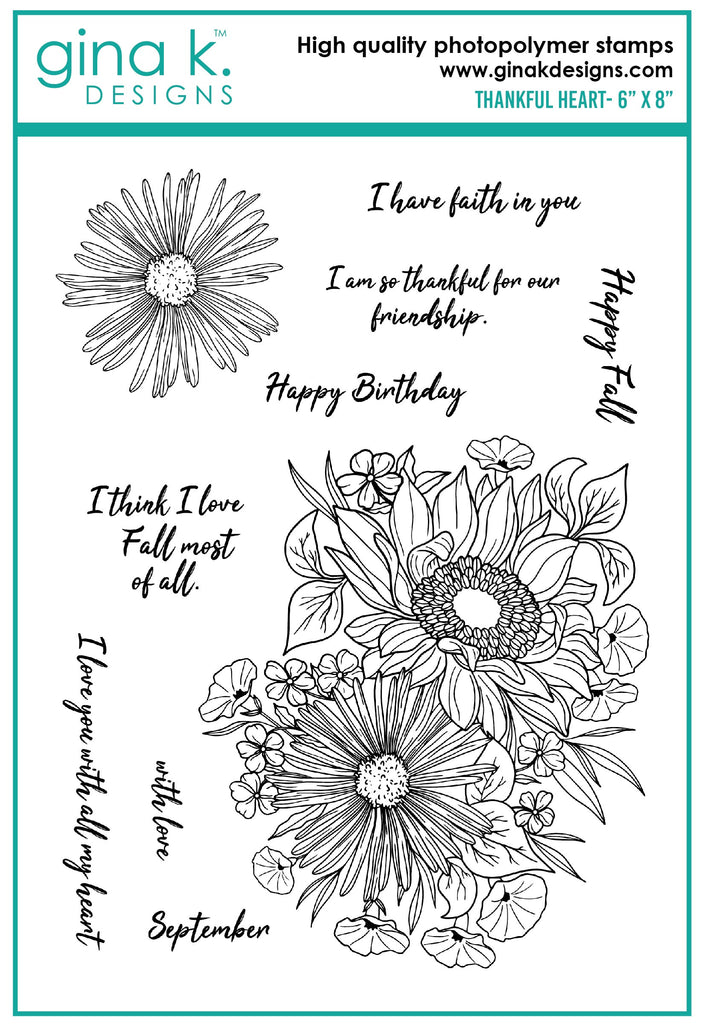 gina k.™
DESIGNS
High quality photopolymer stamps
www.ginakdesigns.com
THANKFUL HEART- 6” X 8”
I have faith in you
I am so thankful for our
friendship.
Happy Fall
Happy Birthday
I think I love
Fall most
of all.
I love you with all my heart
with love
September